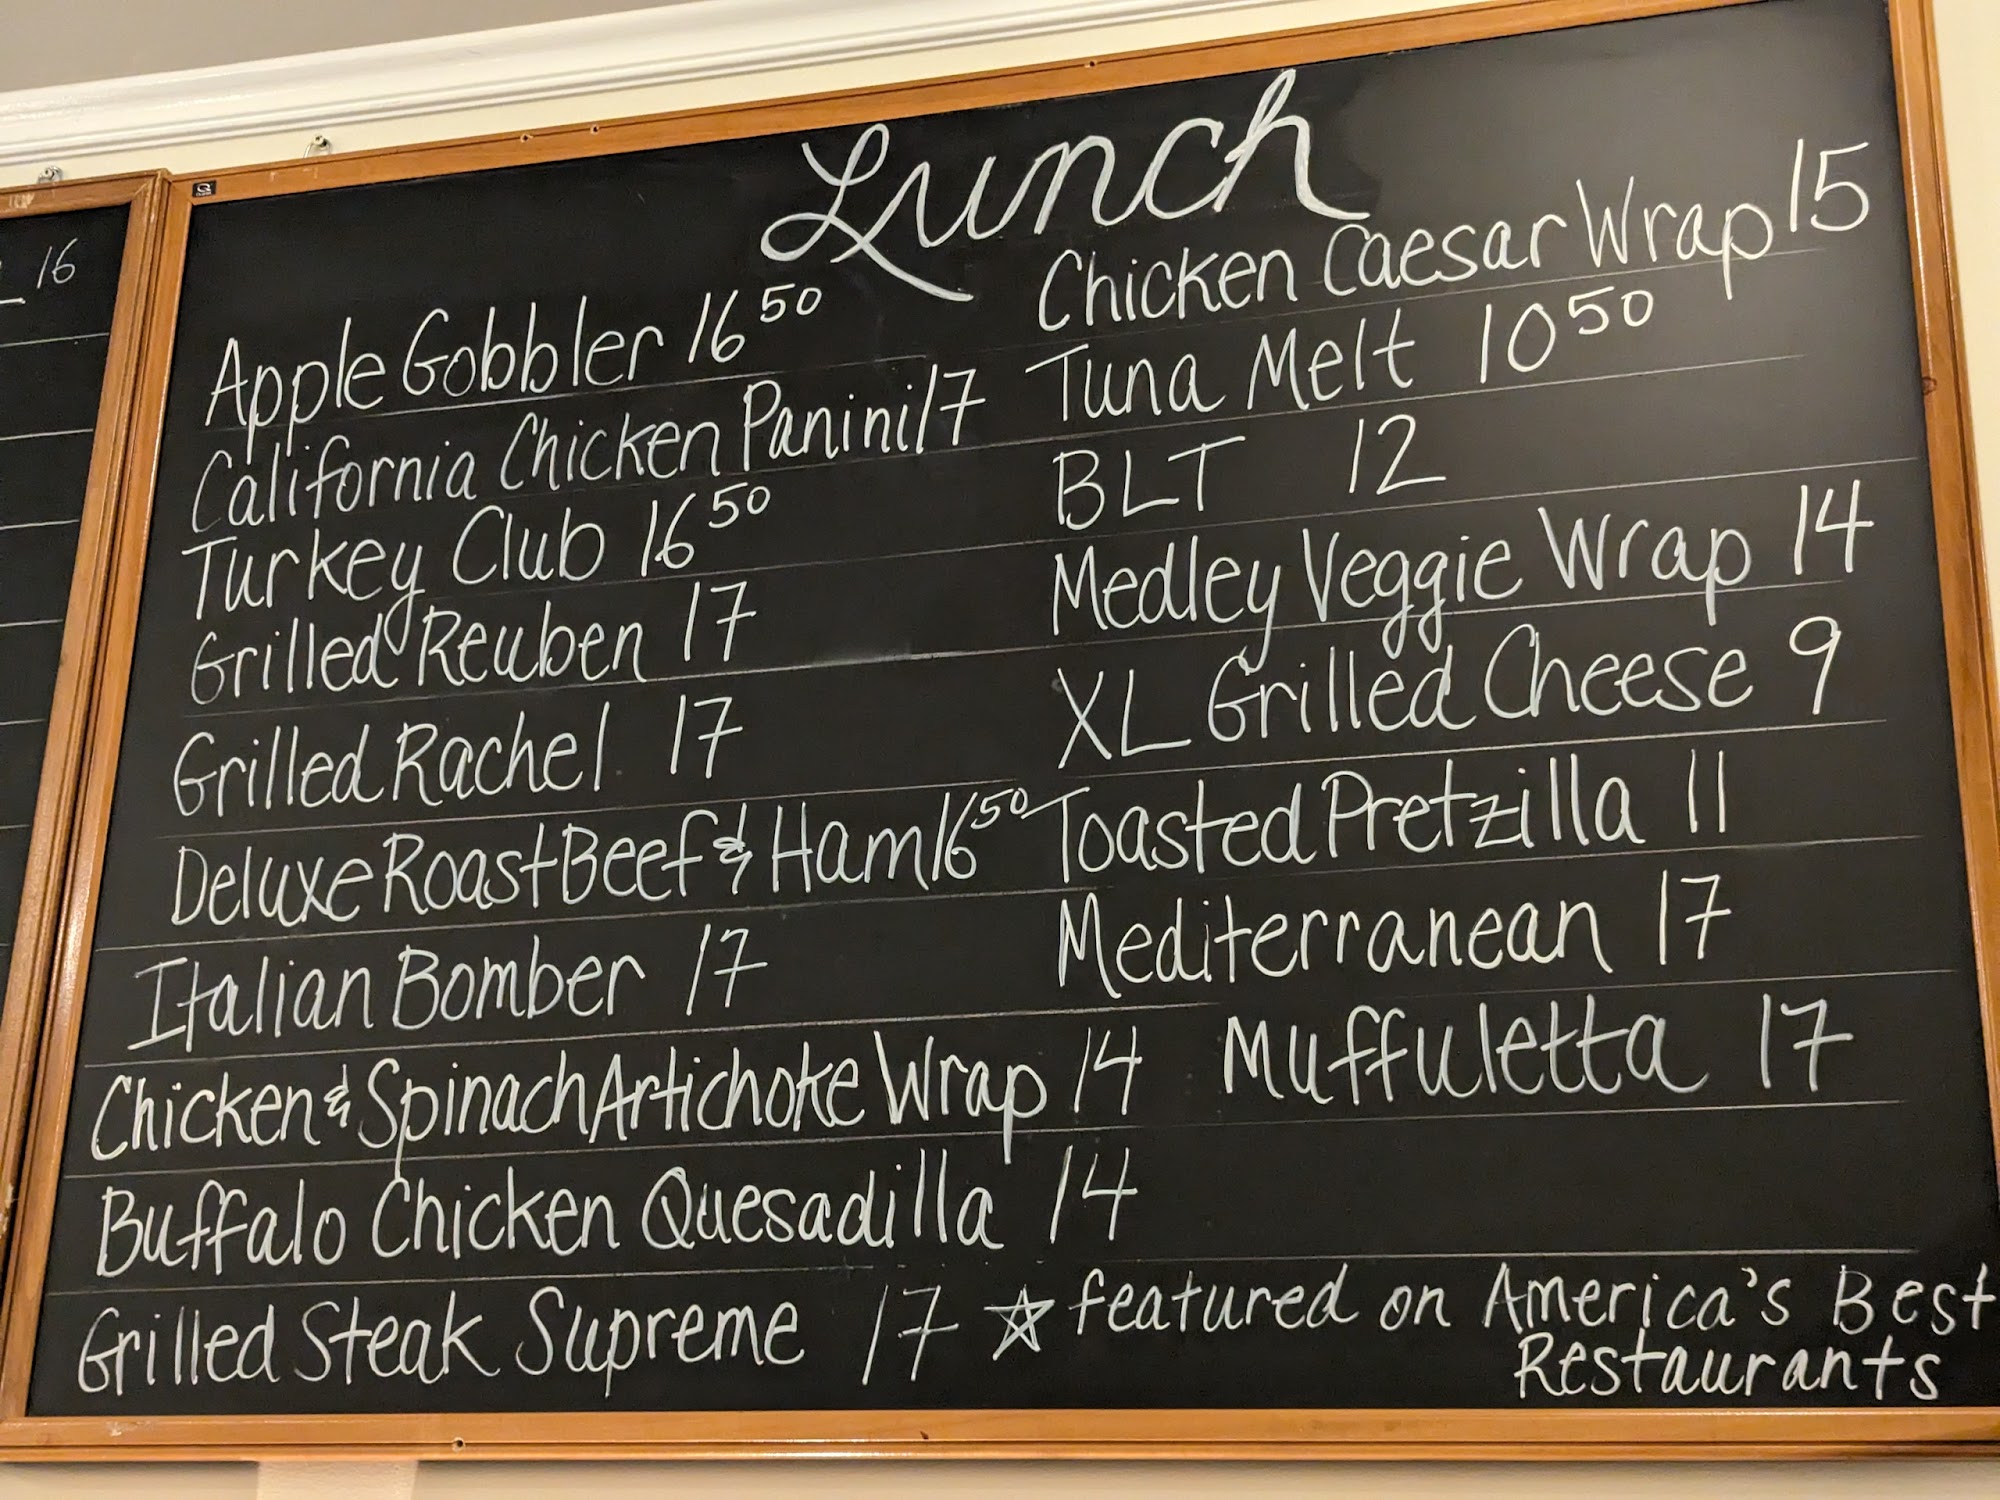 16
Lunch
Apple Gobbler 16 50
California Chicken Panini 17
Turkey Club 16 50
Grilled Reuben 17
Grilled Rachel 17
Deluxe Roast Beef & Ham 16 50
Italian Bomber 17
Chicken & Spinach Artichoke Wrap 14
Buffalo Chicken Quesadilla 14
Grilled Steak Supreme 17 ☆ featured on America's Best
Restaurants
Chicken Caesar Wrap 15
Tuna Melt 10 50
BLT 12
Medley Veggie Wrap 14
XL Grilled Cheese 9
Toasted Pretzilla 11
Mediterranean 17
Muffuletta 17